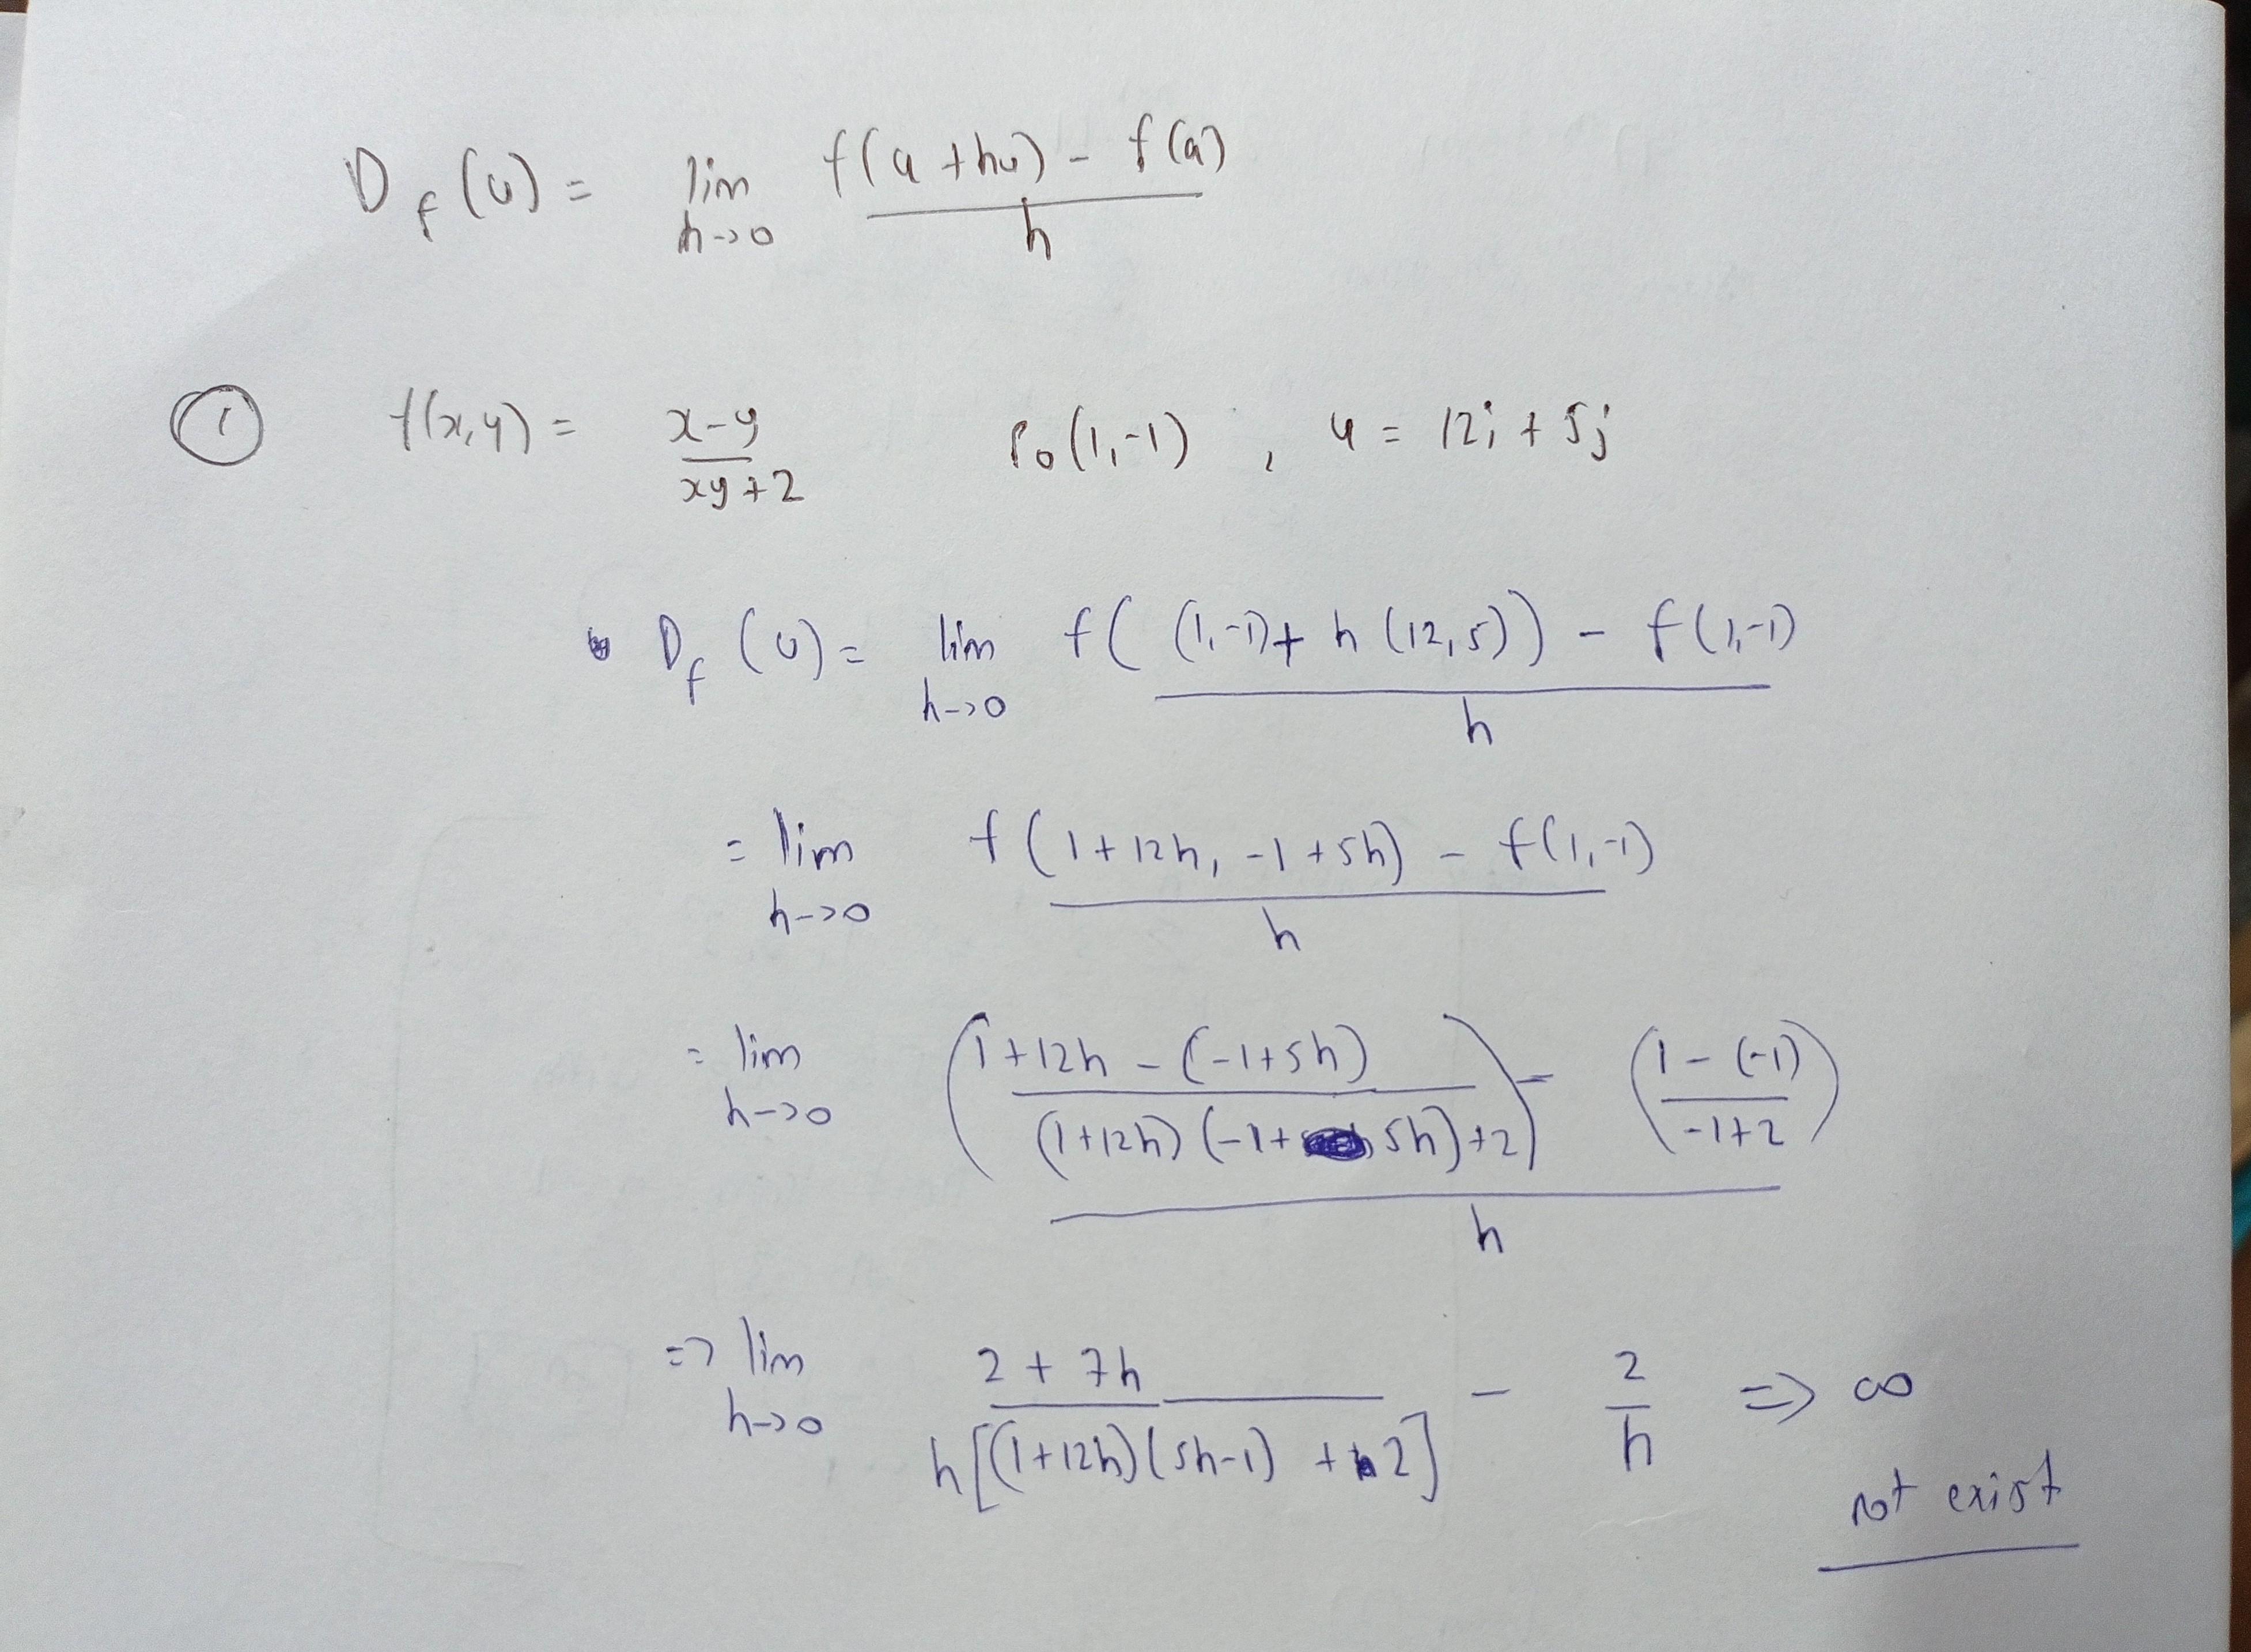 D_f(u) = lim_{h->0} (f(a + hu) - f(a)) / h
① f(x,y) = (x-y) / (xy+2) P₀(1,-1) , u = 12i + 5j
D_f(u) = lim_{h->0} (f((1,-1)+ h(12,5)) - f(1,-1)) / h
= lim_{h->0} (f(1+12h, -1+5h) - f(1,-1)) / h
= lim_{h->0} (((1+12h - (-1+5h)) / ((1+12h)(-1+5h)+2)) - ((1-(-1)) / (-1+2))) / h
=> lim_{h->0} (2 + 7h) / (h[(1+12h)(5h-1) + 2]) - 2/h => ∞
not exist